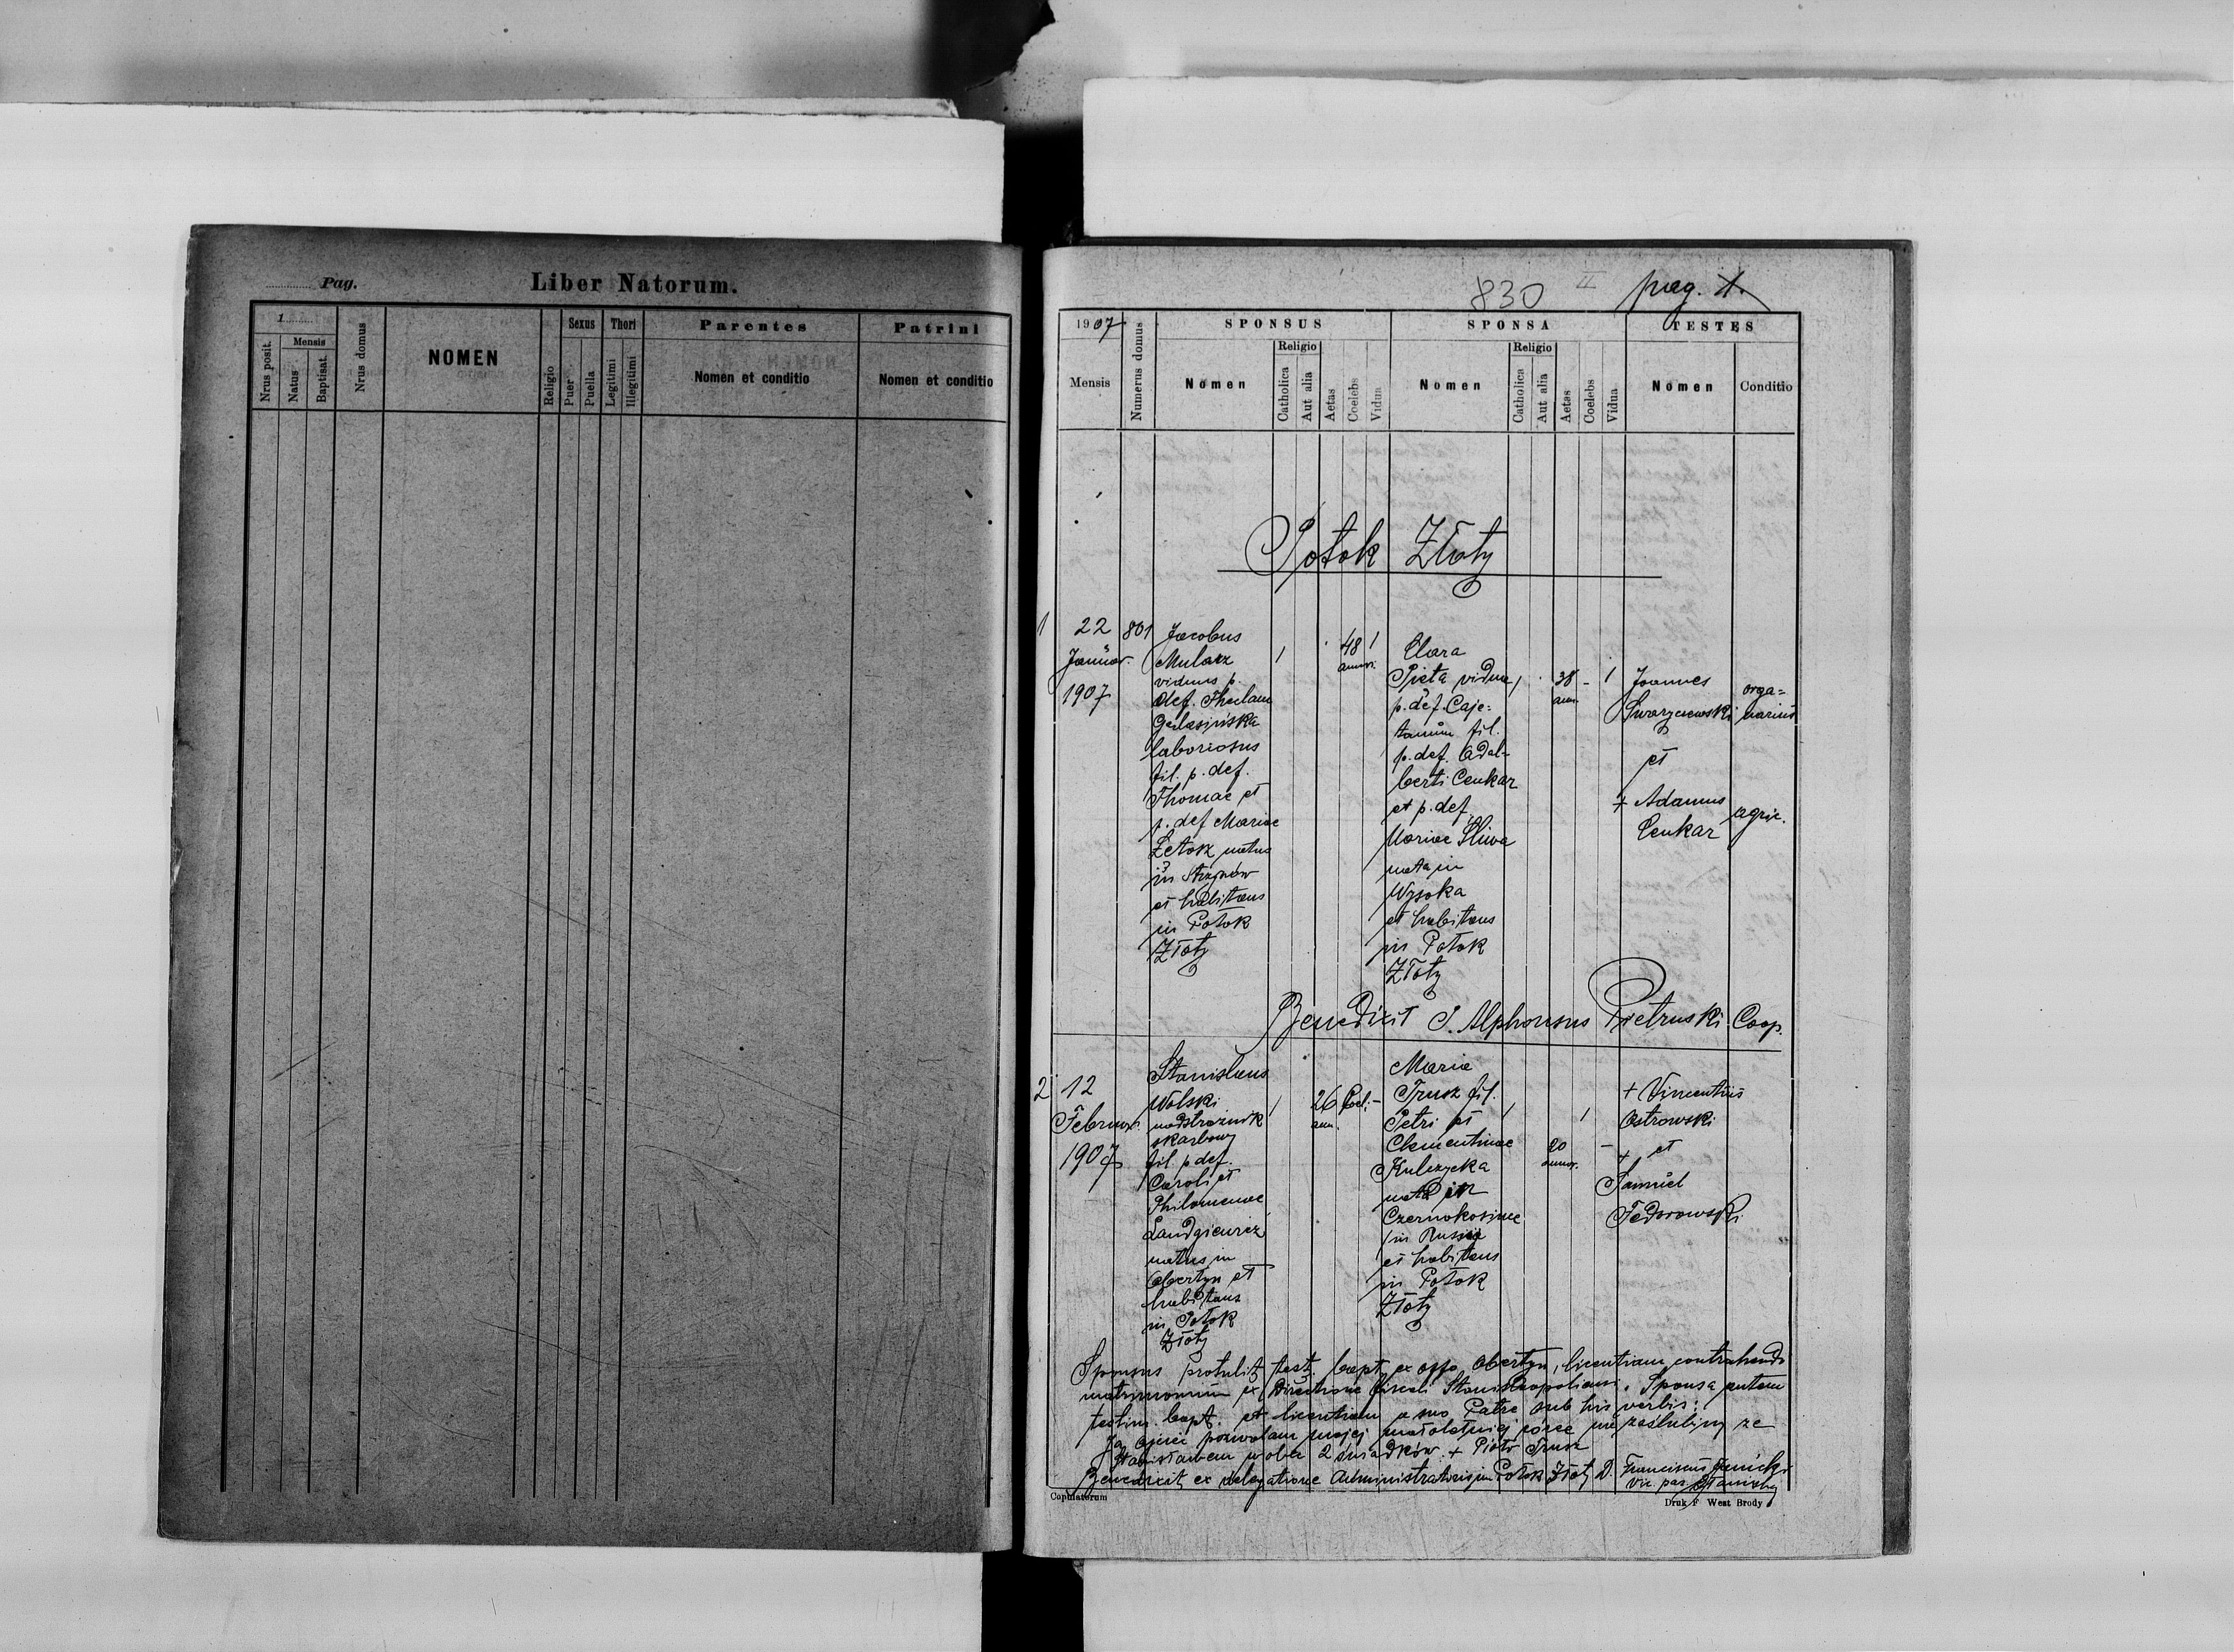 Pag.
Liber Natorum.
1
Nrus posit.
Mensis
Natus
Baptisat.
Nrus domus
NOMEN
Religio
Sexus
Puer
Puella
Thori
Legitimi
Illegitimi
Parentes
Nomen et conditio
Patrini
Nomen et conditio
830 II pag. 1.
1907
Mensis
Numerus domus
SPONSUS
Nomen
Religio
Catholica
Aut alia
Aetas
Coelebs
Vidua
SPONSA
Nomen
Religio
Catholica
Aut alia
Aetas
Coelebs
Vidua
TESTES
Nomen
Conditio
Potok Złoty
1
22
Januar.
1907
801
Jacobus
Mularz
viduus p.
def.
laboriosus
fil. p. def.
Thomae et
p. def Mariae
natus
in
et habitans
in Potok
Złoty
1
48
annor.
1
Clara
Pieta vidua
p. def. Caje-
tanum fil.
p. def. Adal-
berti Cenkar
et p. def.
Mariae Śliwa
nata in
Wysoka
et habitans
in Potok
Złoty
1
38
ann.
-
1
Joannes
et
+ Adamus
Cenkar
orga=
narius
agric.
Benedixit J. Alphonsus Pietruski Coop.
2
12
Februar.
1907
Stanislaus
Wolski
nadstrażnik
skarbowy
fil. p def.
Caroli et
Philomenae
Landgiewicz
natus in
Obertyn et
habitans
in Potok
Złoty
1
26
ann.
Coel.
-
Maria
Trusz fil.
Petri et
Clementinae
Kulczycka
nata in
Czernokosince
in Russia
et habitans
in Potok
Złoty
1
20
annor.
1
-
+ Vincentius
Ostrowski
+ et
Samuel
Fedorowski
Sponsus protulit test. bapt. ex offo Obertyn, licentiam contrahendi
matrimonium ex Directione fiscali Stanislaopoliensi. Sponsa autem
testim. bapt. et licentiam a suo Patre sub his verbis:
Ja ojciec pozwalam mojej małoletniej córce na zaślubiny ze
Stanisławem wobec 2 świadków. + Piotr Trusz
Benedixit ex delegatione Administratoris in Potok Złoty D. Franciscus
Vic.
Copulatorum
Druk F West Brody